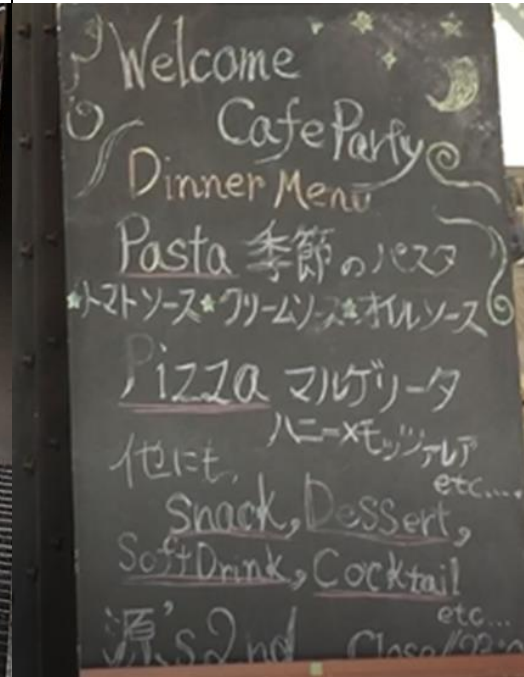 Welcome
Cafe Party
Dinner Menu
Pasta 季節のパスタ
トマトソース★クリームソース★オイルソース
Pizza マルゲリータ
ハニー×モッツァレア
etc....
他にも,
Snack, Dessert,
Soft Drink, Cocktail
etc...
源's 2nd Close